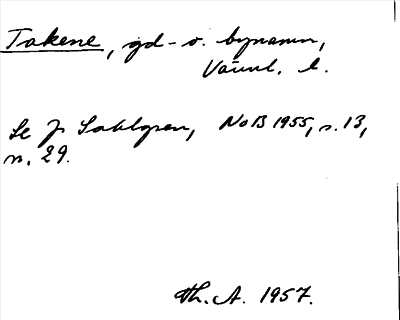 Takene, gd- o. bynamn,
Värml. l.
Se J. Sahlgren, NoB 1955, s. 13,
n. 29.
Th. A. 1957.